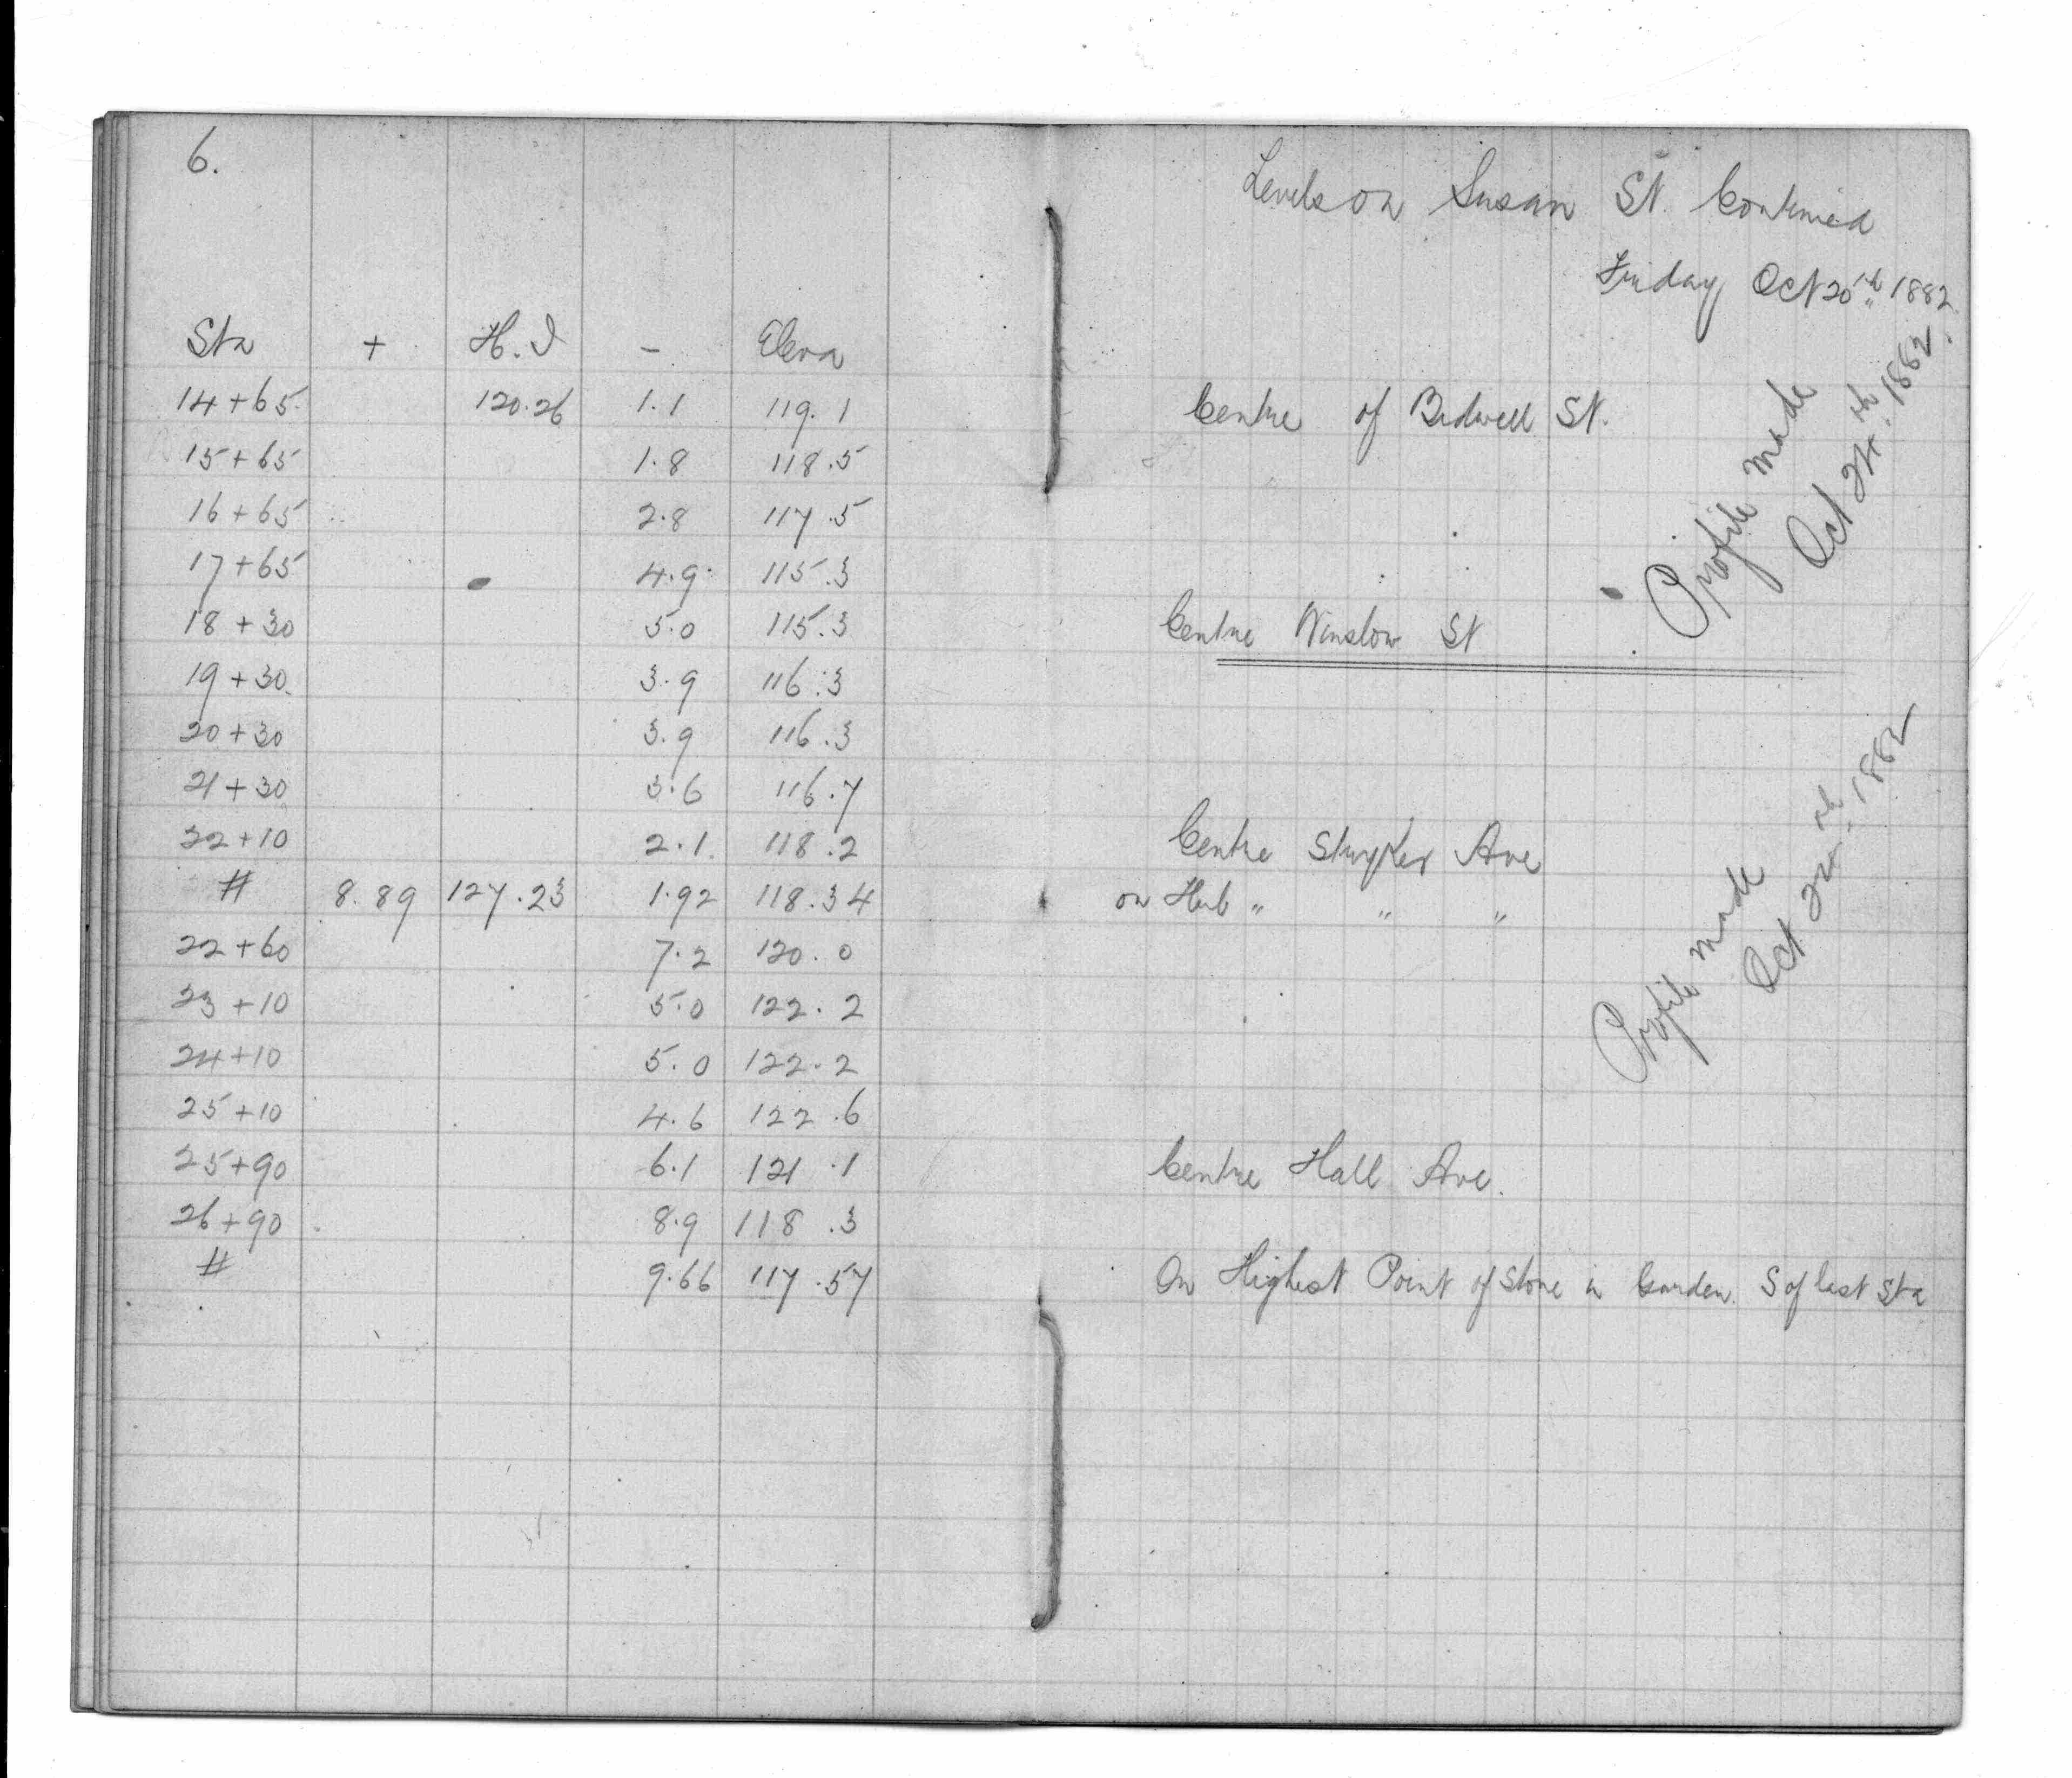 6.
Levels on Susan St. Continued
Friday Oct 20th 1882.
Sta + H.I - Eleva
14+65 120.26 1.1 119.1 Centre of Bidwell St.
15+65 1.8 118.5
16+65 2.8 117.5
17+65 4.9 115.3
18+30 5.0 115.3 Centre Winslow St
19+30 3.9 116.3
20+30 3.9 116.3
21+30 3.6 116.7
22+10 2.1 118.2 Centre Stryker Ave
# 8.89 127.23 1.92 118.34 on Hub " " "
22+60 7.2 120.0
23+10 5.0 122.2
24+10 5.0 122.2
25+10 4.6 122.6
25+90 6.1 121.1 Centre Hall Ave.
26+90 8.9 118.3
# 9.66 117.57 On Highest Point of Stone in Garden S of last Sta
Profile made
Oct 24th. 1882
Profile made
Oct 24th. 1882